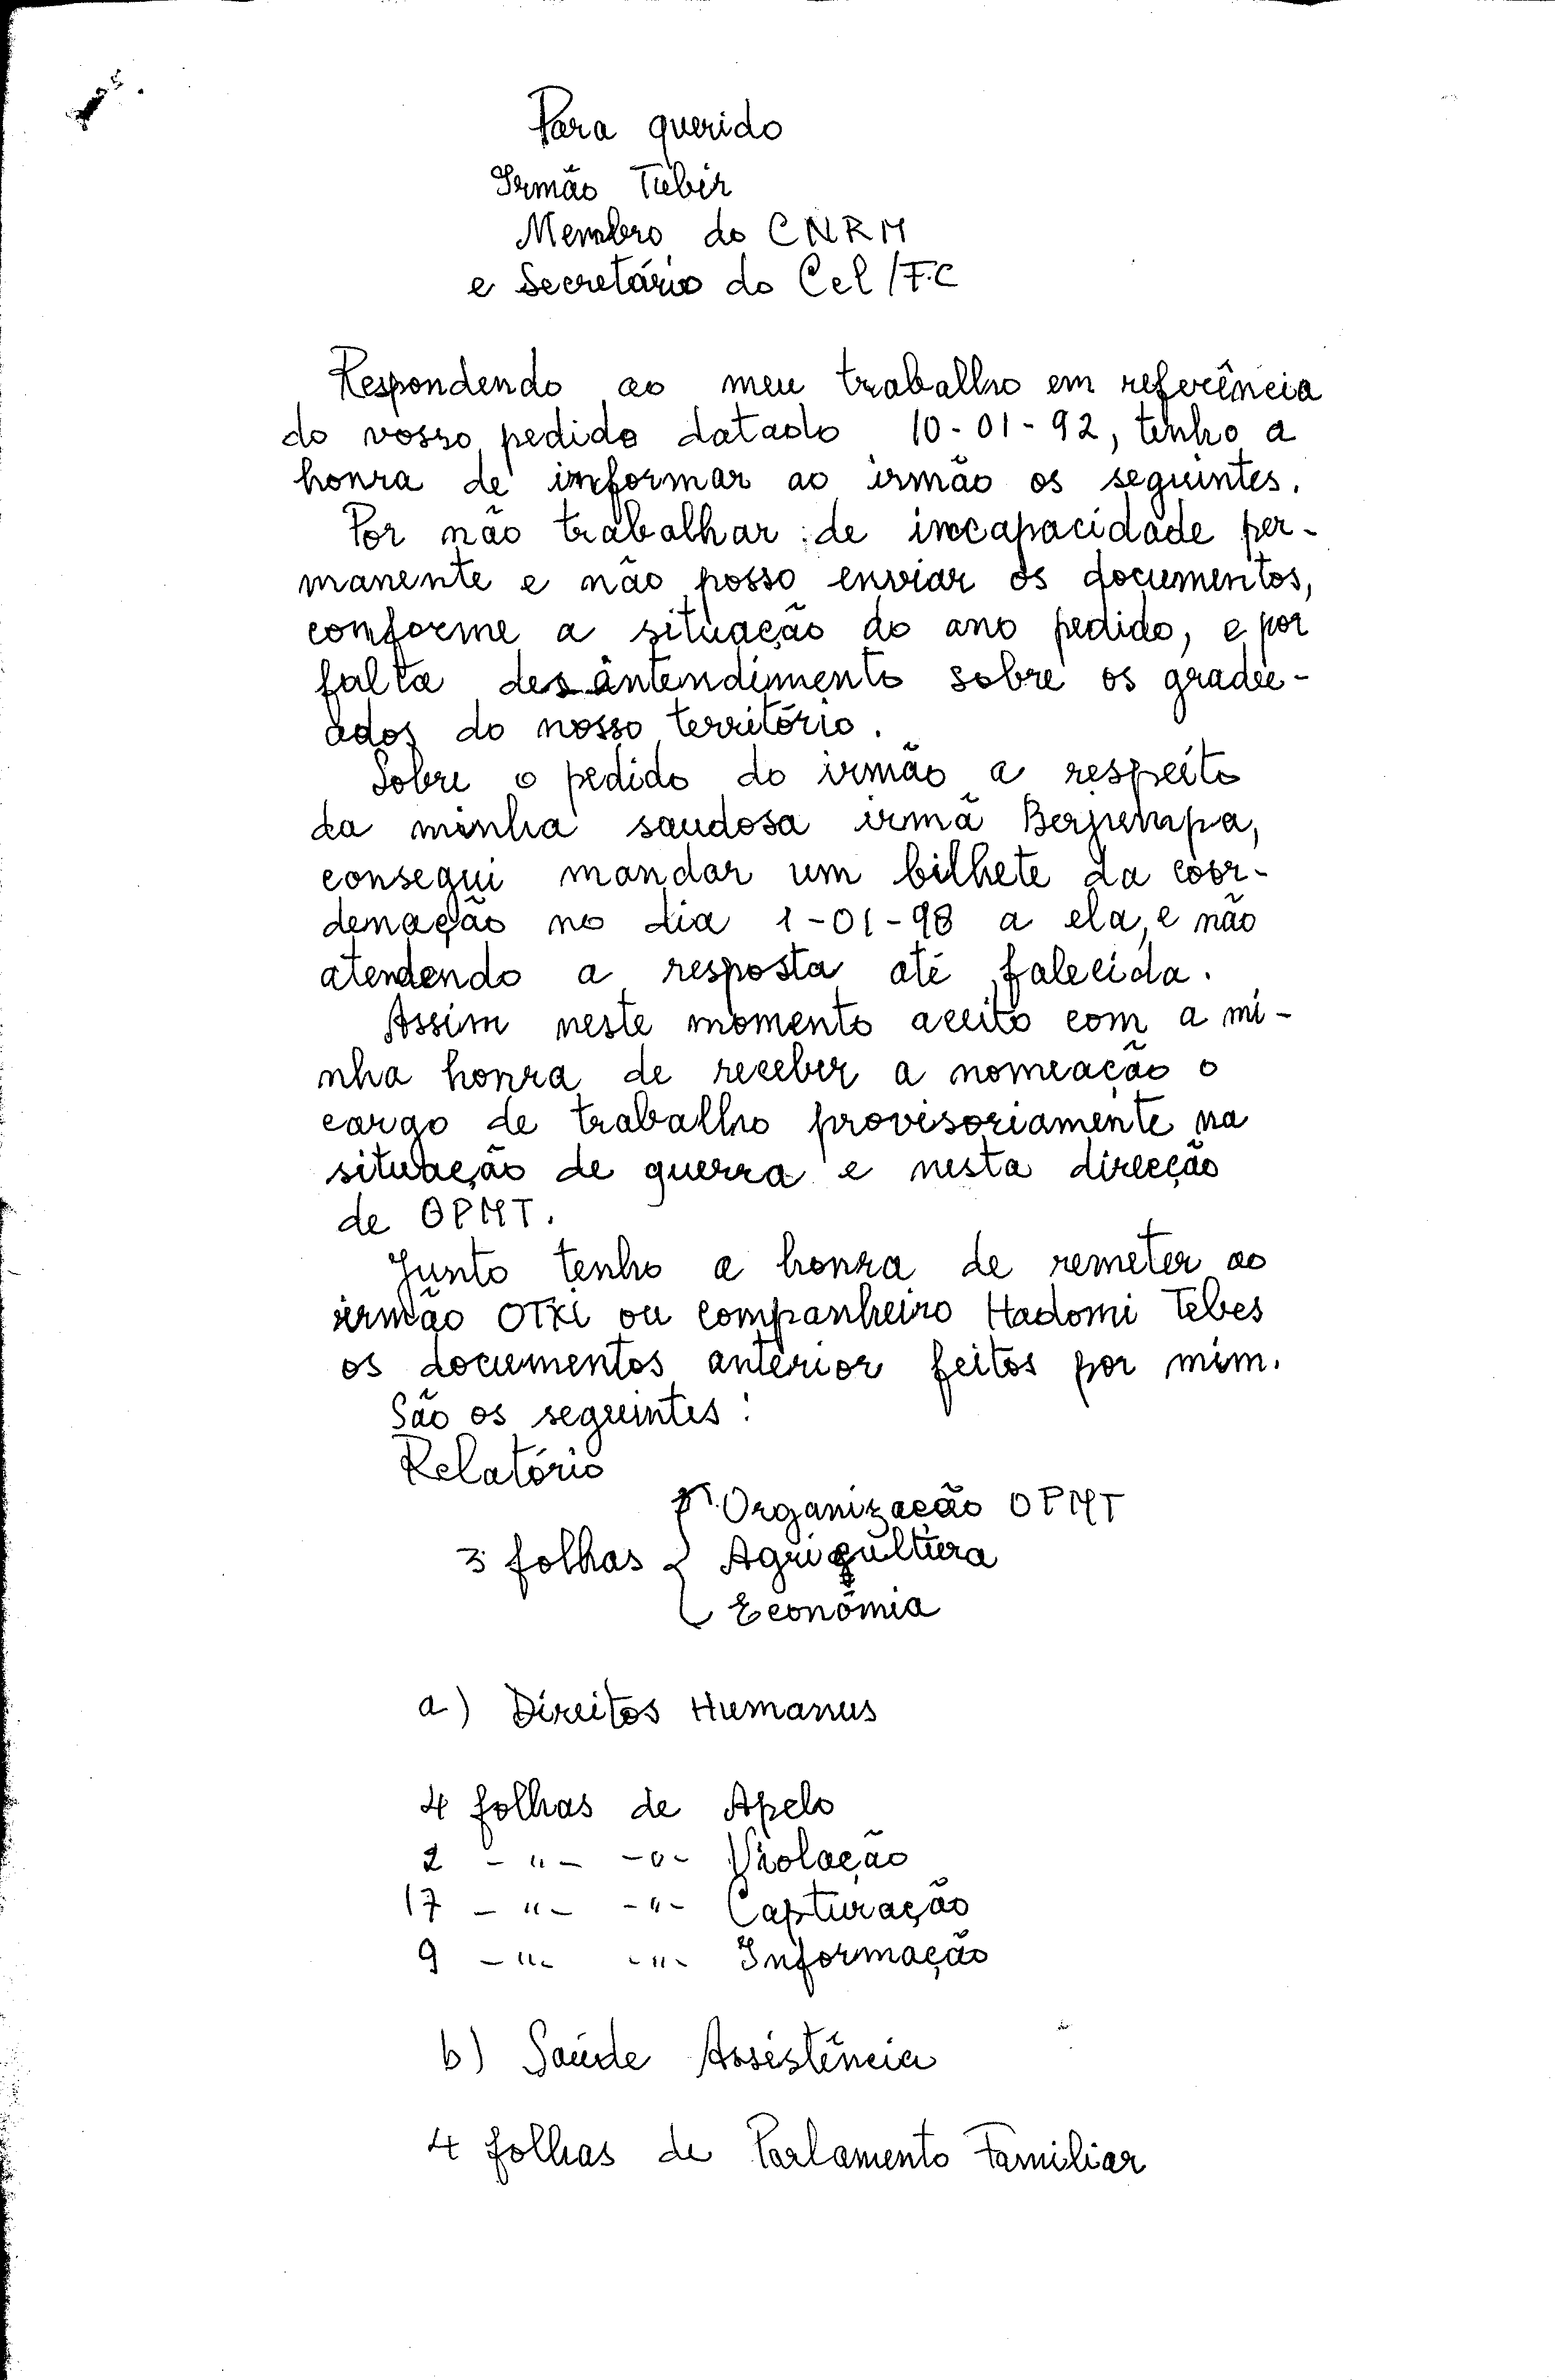 Para querido
Irmão Tubir
Membro do CNRM
e Secretário do Cel/F.C
Respondendo ao meu trabalho em referência
do vosso pedido datado 10-01-92, tenho a
honra de informar ao irmão os seguintes.
Por não trabalhar de incapacidade per-
manente e não posso enviar os documentos,
conforme a situação do ano pedido, e por
falta desântendimento sobre os
do nosso território.
Sobre o pedido do irmão a respeito
da minha saudosa irmã
consegui mandar um bilhete da coor-
denação no dia 1-01-98 a ela, e não
atendendo a resposta até falecida.
Assim neste momento aceito com a mi-
nha honra de receber a nomeação o
cargo de trabalho provisoriamente na
situação de guerra e nesta direcção
de OPMT.
Junto tenho a honra de remeter ao
irmão ou companheiro Hadomi Tebes
os documentos anterior feitos por mim.
São os seguintes:
Relatório
Organização OPMT
3 folhas { Agricultura
Econômia
a) Direitos Humanus
4 folhas de Apelo
2 - " - - " - Violação
17 - " - - " - Capturação
9 - " - - " - Informação
b) Saúde Assistência
4 folhas de Parlamento Familiar